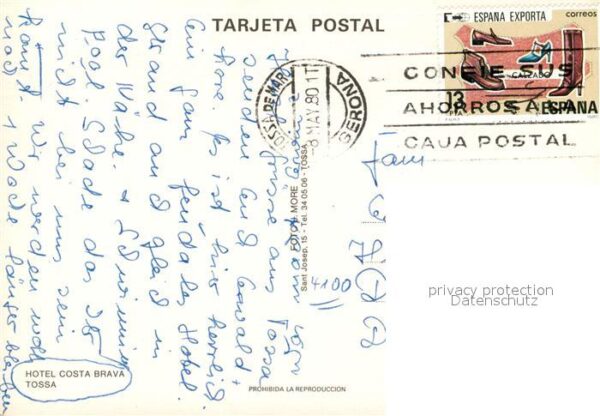 TARJETA POSTAL
ESPAÑA EXPORTA
correos
CALZADO
13
PTA
ESPAÑA
TOSSA DE MAR
-8 MAY 80 1T
GERONA
CONFIE SUS
AHORROS A LA
CAJA POSTAL
Fam
aus Tossa
senden Euch Oswald +
es ist hier herrlich
ein ganz feudales Hotel
Strand and gleich in
der Nähe. + Schwimm
Pool. Schade das Ihr
nicht bei uns sein
könnt. Wir werden wohl
noch 1 Woche länger bleiben
4100
FOTO R. MORE
Sant Josep, 15 - Tel. 34 05 06 - TOSSA
HOTEL COSTA BRAVA
TOSSA
PROHIBIDA LA REPRODUCCION
privacy protection
Datenschutz